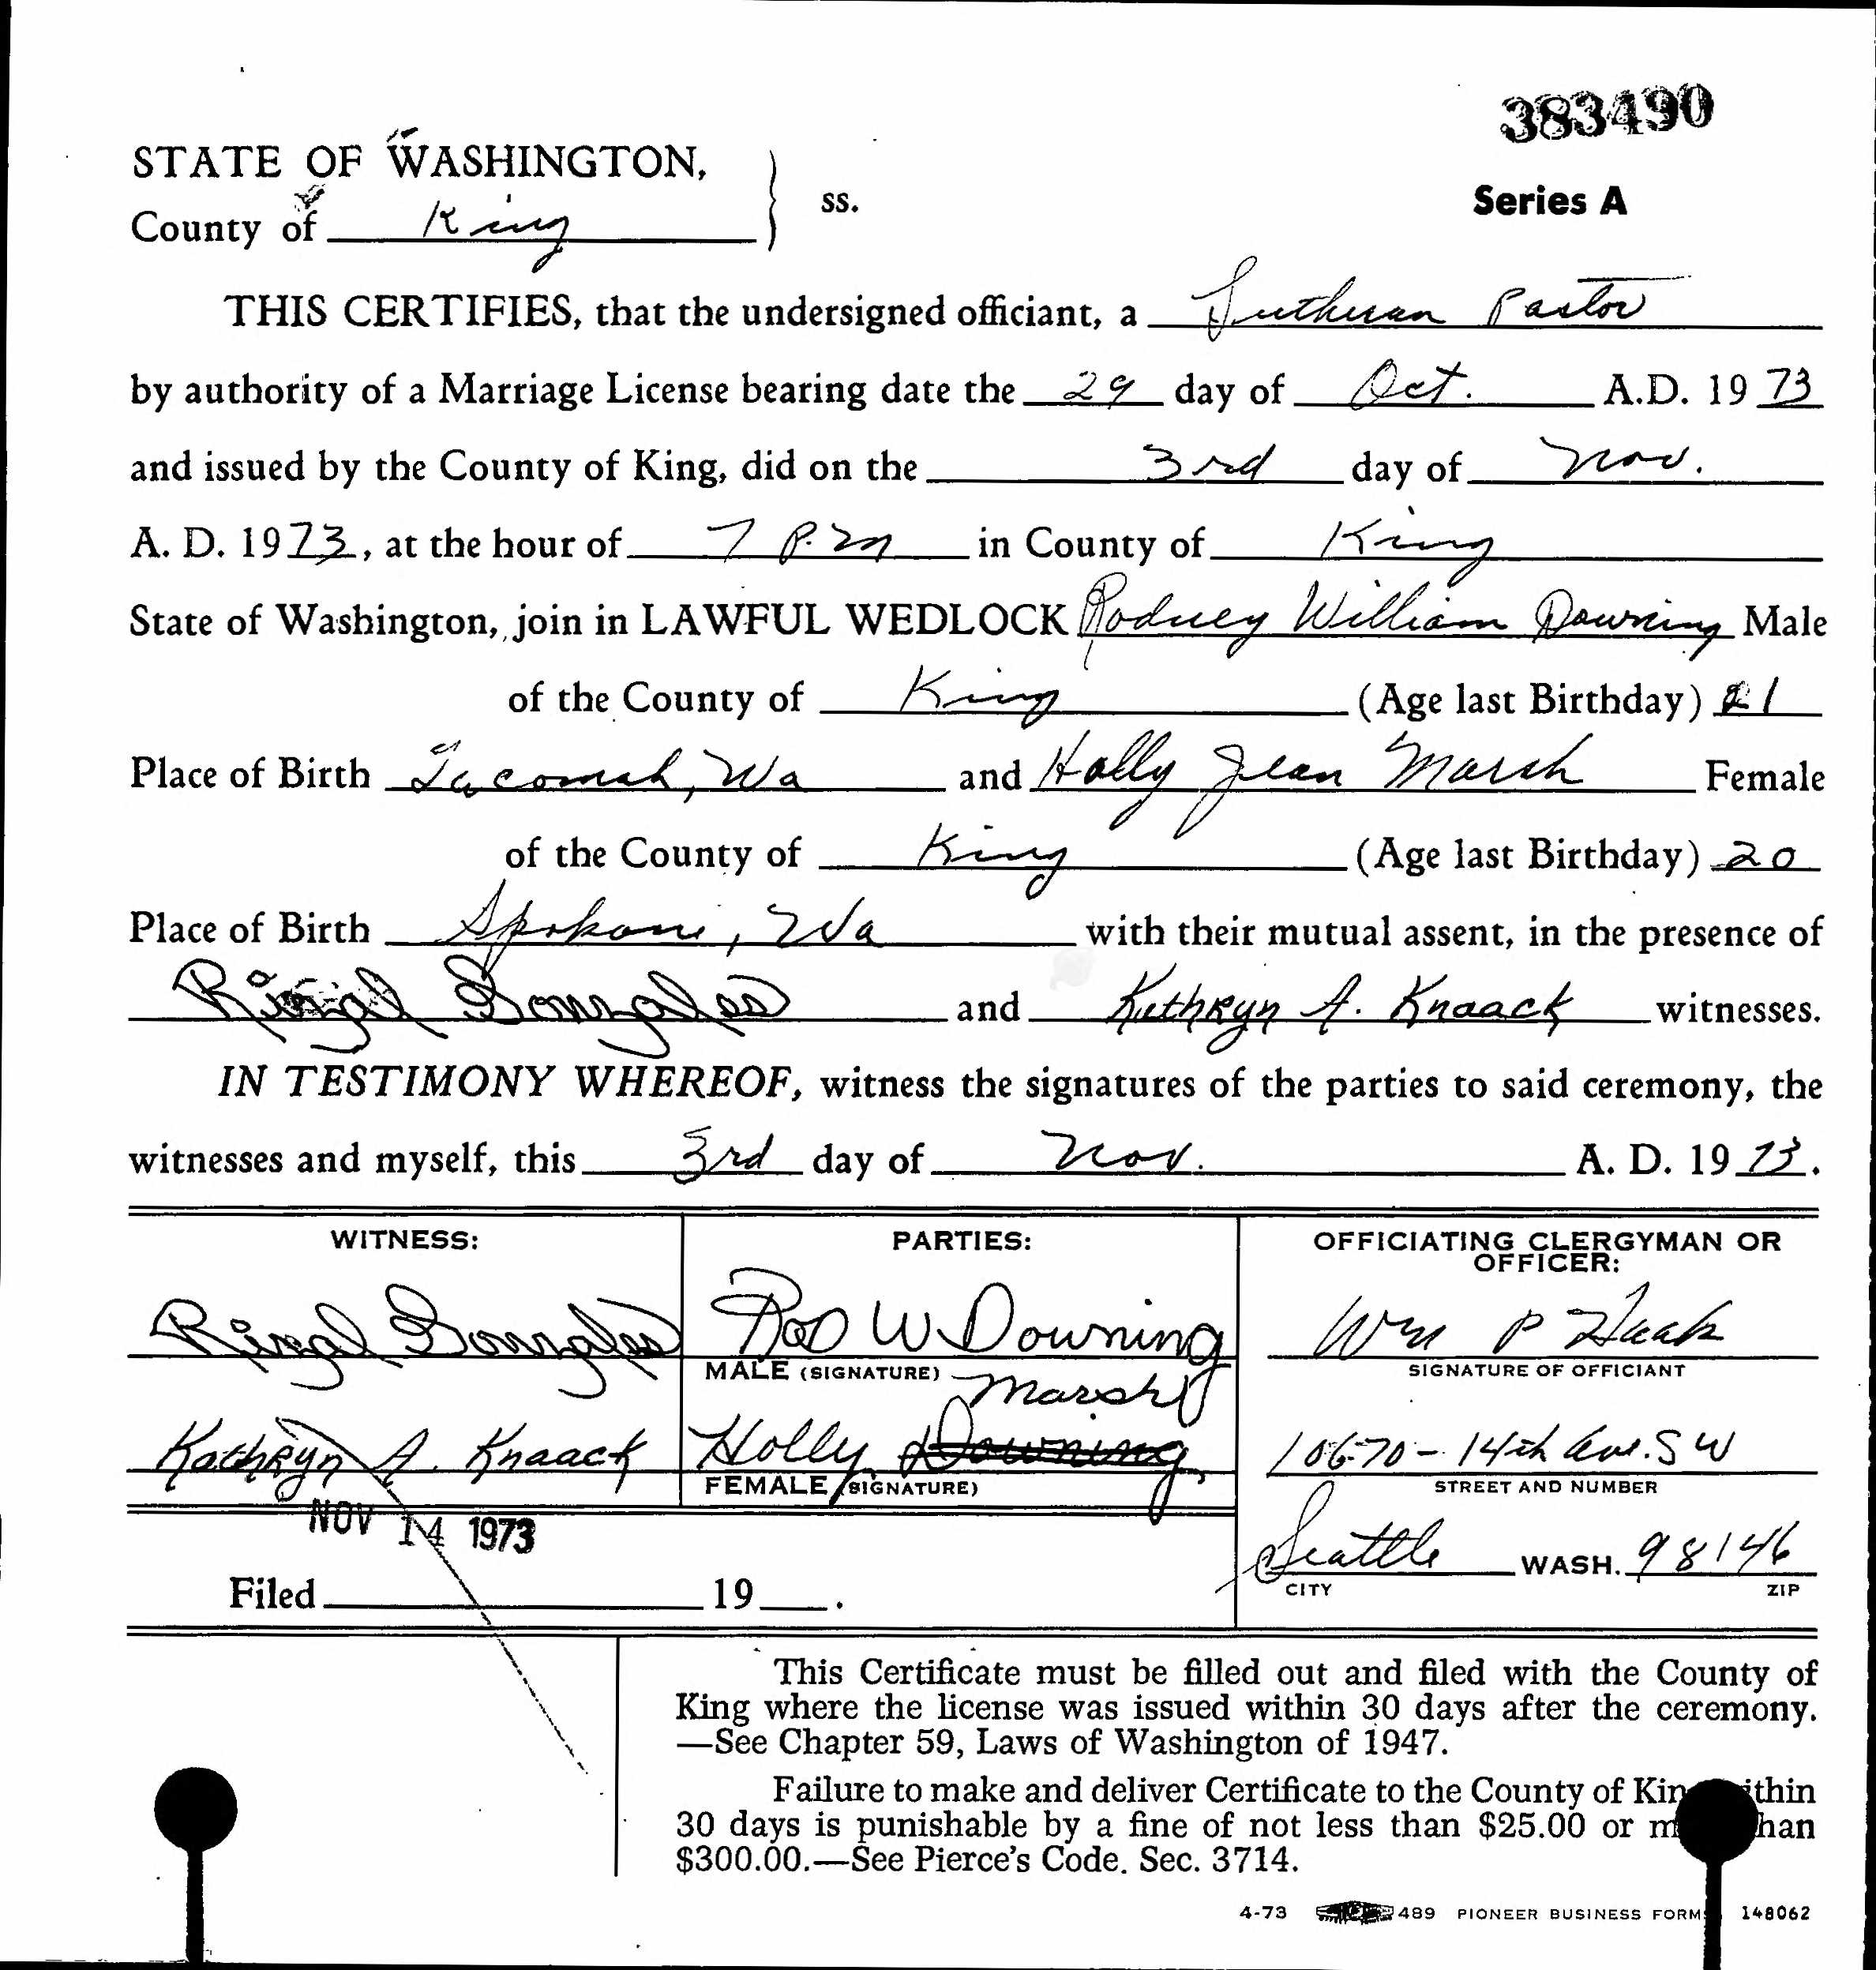 383490
STATE OF WASHINGTON,
County of King ss.
Series A
THIS CERTIFIES, that the undersigned officiant, a Lutheran Pastor
by authority of a Marriage License bearing date the 29 day of Oct. A.D. 19 73
and issued by the County of King, did on the 3rd day of Nov.
A. D. 1973, at the hour of 7 P.M in County of King
State of Washington, join in LAWFUL WEDLOCK Rodney William Downing Male
of the County of King (Age last Birthday) 21
Place of Birth Tacomah, Wa and Holly Jean Marsh Female
of the County of King (Age last Birthday) 20
Place of Birth Spokane, Wa with their mutual assent, in the presence of
and Kathryn A. Knaack witnesses.
IN TESTIMONY WHEREOF, witness the signatures of the parties to said ceremony, the
witnesses and myself, this 3rd day of Nov. A. D. 19 73.
WITNESS: PARTIES: OFFICIATING CLERGYMAN OR
OFFICER:
Rod W Downing Wm P
MALE (SIGNATURE) SIGNATURE OF OFFICIANT
Marsh
Kathryn A. Knaack Holly Downing 10670 - 14th Ave. SW
FEMALE (SIGNATURE) STREET AND NUMBER
NOV 14 1973
Seattle WASH. 98146
CITY ZIP
Filed 19 .
This Certificate must be filled out and filed with the County of
King where the license was issued within 30 days after the ceremony.
—See Chapter 59, Laws of Washington of 1947.
Failure to make and deliver Certificate to the County of Kin ithin
30 days is punishable by a fine of not less than $25.00 or m han
$300.00.—See Pierce's Code. Sec. 3714.
4-73 489 PIONEER BUSINESS FORMS 148062